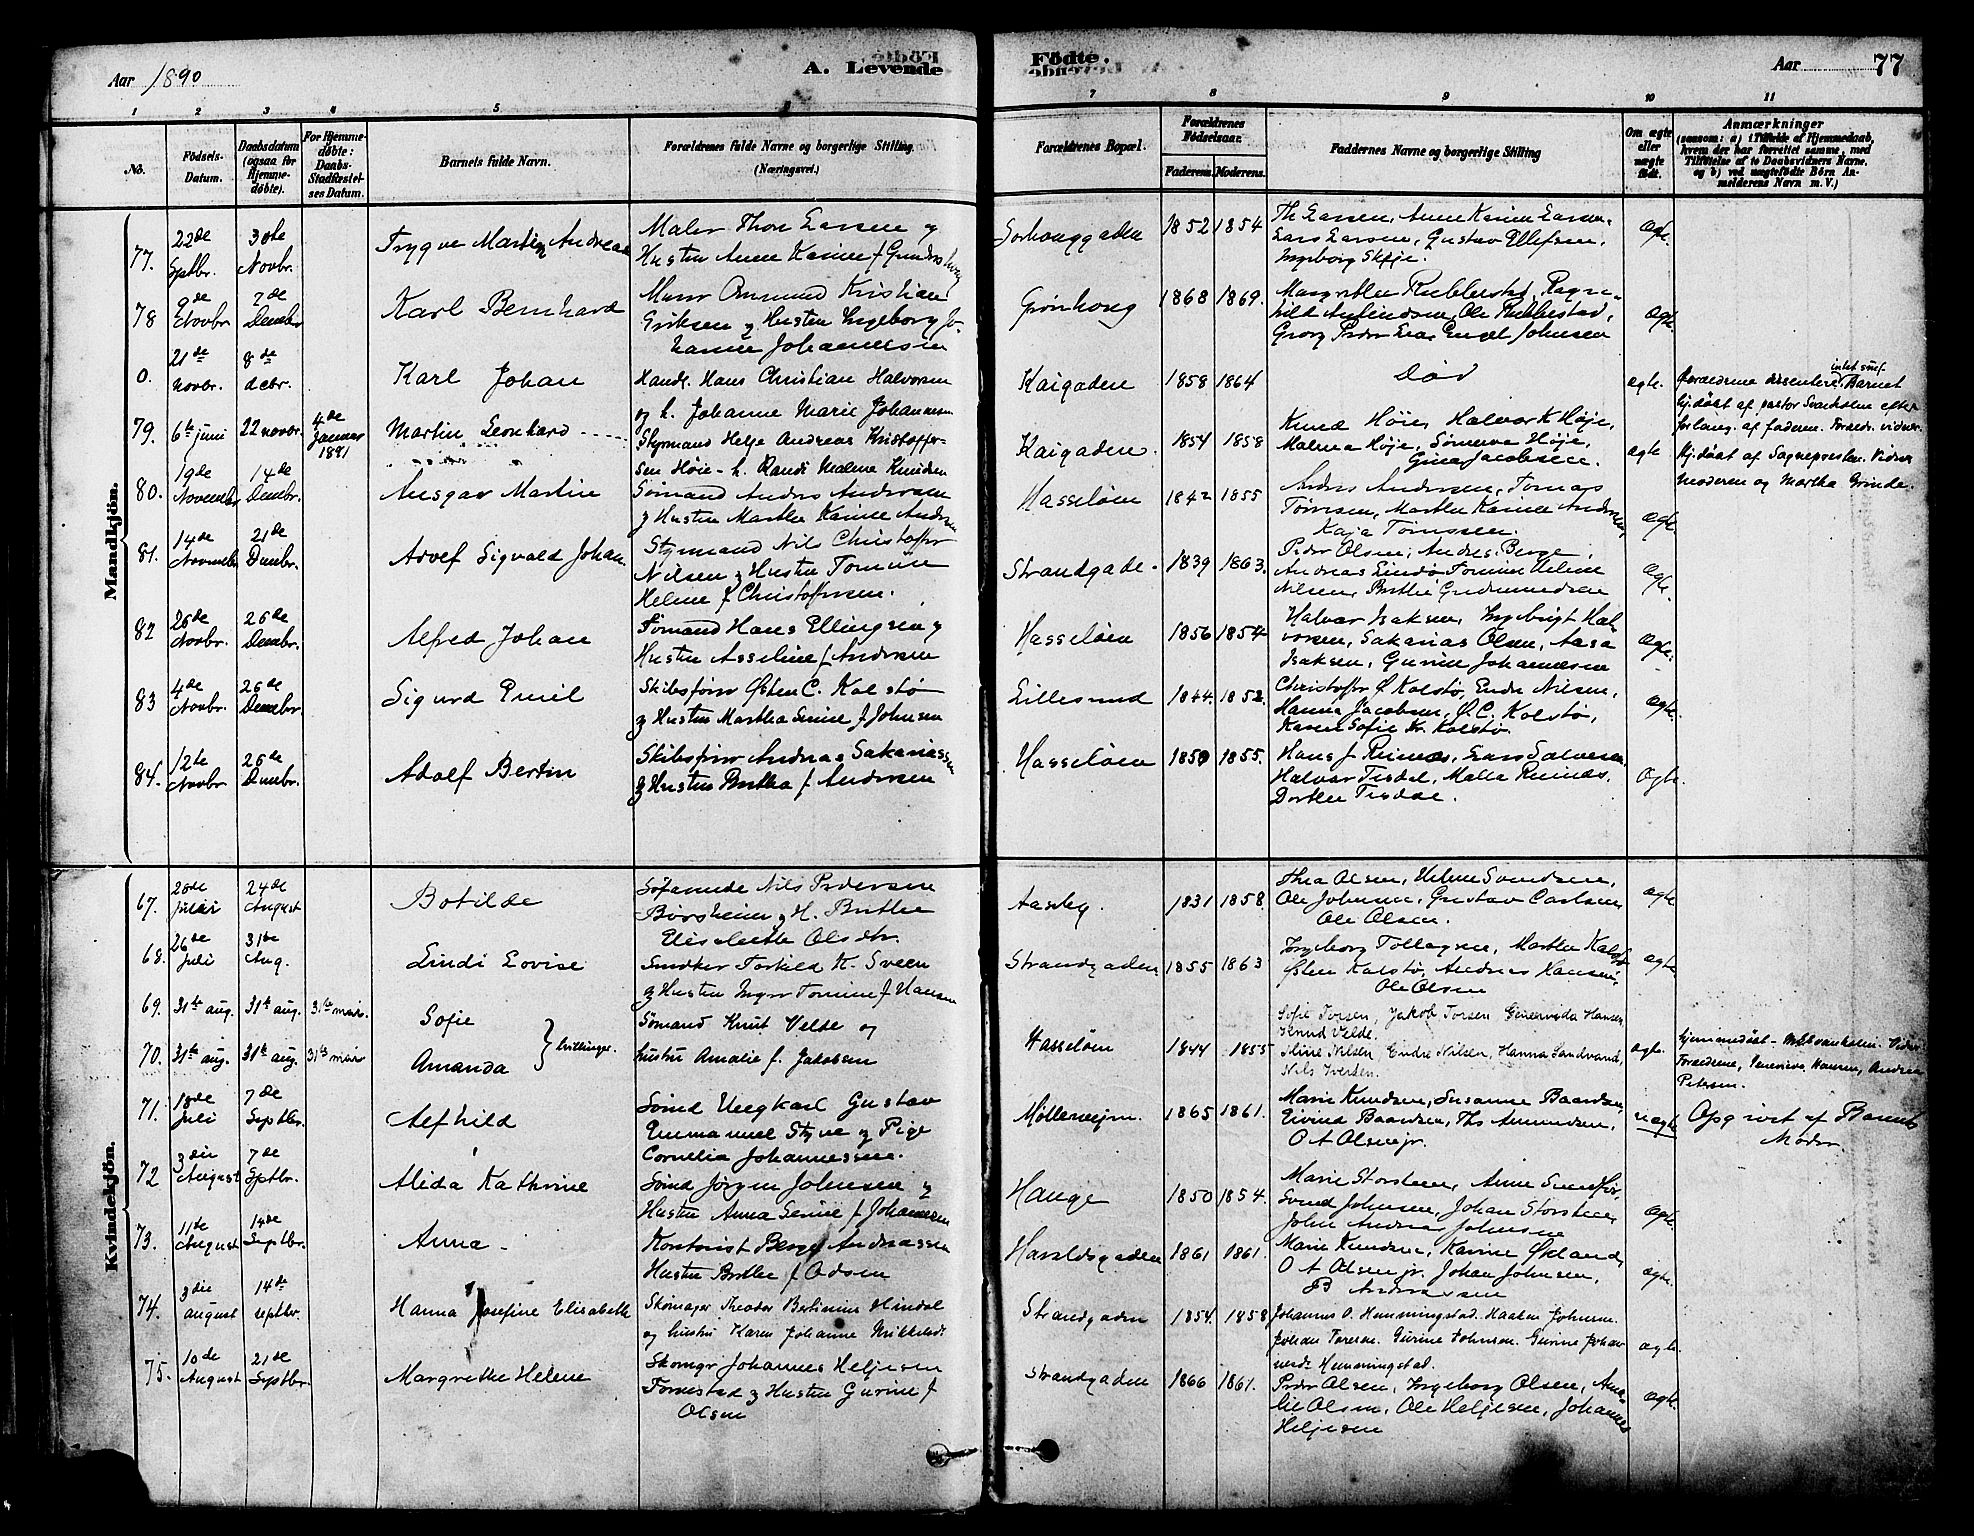 Aar 1890
A. Levende
Fødte.
Aar
77
1 2 3 4 5 6 7 8 9 10 11
No.
Fødsels-Datum.
Daabsdatum (ogsaa for Hjemmedøbte).
For Hjemmedøbte: Daabs-Stadfæstelses Datum.
Barnets fulde Navn.
Forældrenes fulde Navne og borgerlige Stilling (Næringsvei.)
Forældrenes Bopæl.
Forældrenes Fødselsaar.
Faderens. Moderens.
Faddernes Navne og borgerlige Stilling
Om ægte eller uægte født.
Anmærkninger
(saasom: a) i Tilfælde af Hjemmedaab, hvem der har forrettet samme, med Tilføielse af to Daabsvidners Navne. og b) ved uægtefødte Børn Anmelderens Navn m. V.)
Mandkjøn.
77. 22de Septbr. 30te Novbr. Trygve Martin Andreas
Maler Thore Larsen og
Hustru Anne Karine f. Gundershoug
Sørhouggaden 1852 1854
Th. Larsen, Anne Karine Larsen,
Lars Larsen, Gustav Ellefsen,
Ingeborg Skeje.
ægte.
78 9de Novbr 7de Decmbr Karl Bernhard
Murer Omund Kristian
Eriksen og Hustru Ingeborg Jo-
hanne Johannessen
Grønhoug 1868 1869.
Margrethe Rubbestad, Ragn-
hild Amundsen, Ole Rubbestad,
Georg Peder Lea, Engel Johnsen
ægte
0. 21de novbr. 8de debr. Karl Johan
Handl. Hans Christian Halvorsen
og h. Johanne Marie Johannesen
Kaigaden 1858 1864
Død
ægte.
Forældrene dissentere, intet surf. Barnet
hj.døbt af pastor Svanholm efter
forlang. af faderen. Foræld. vidner.
79. 6te juni 22 novbr. 4de Januar 1891 Martin Leonhard
Styrmand Helge Andreas Kristoffer-
sen Høie - h. Randi Malene Knudsen
Kaigaden. 1854 1858
Knud Høie, Halvor K Høje,
Malene Høje, Sømerve Høje,
Gina Jacobsen.
ægte
Hj.døbt af Sognepresten. Vidner
moderen og Martha Grinde.
80. 19de November 14de Decmbr Ansgar Martin
Sømand Anders Andersen
og Hustru Marthe Karine Andersen
Hasseløen 1842 1855
Anders Andersen, Tomas
Tønesen, Marthe Karine Andersen,
Kaja Tønessen.
ægte.
81. 14de Novmbr 21de Decmbr. Adolf Sigvald Johan
Styrmand Nils Christoffer
Nilsen og Hustru Tomine
Helene f. Christoffersen.
Strandgade. 1839 1863.
Peder Olsen, Andreas Berge,
Andreas Lindø, Tomine Helene
Nilsen, Berthe Gudmundsen
ægte.
82 26de Novbr. 26de Decmbr. Alfred Johan
Sømand Hans Ellingsen og
Hustru Asseline f. Andersen
Hasseløen 1856 1854
Halvor Isaksen, Ingebrigt Hal-
vorsen, Sakarias Olsen, Aasa
Isaksen, Gurine Johannessen
ægte.
83 4de Novbr. 26de Decmbr. Sigurd Emil
Skibsfører Østen C. Kolstø
og Hustru Martha Serine f. Johnsen
Lillesund 1844. 1852.
Christoffer Ø Kolstø, Endre Nilsen,
Hanna Jacobsen, Ø. C. Kolstø,
Karen Sofie Kr. Kolstø.
ægte.
84. 12te Novbr. 26de Decmbr. Adolf Bertin
Skibsfører Andreas Sakariassen
og Hustru Bertha f. Andersen
Hasseløen 1850 1855.
Hans J. Reinæs, Lars Salvesen
Halvor Tisdal, Malla Reinæs,
Dorthe Tisdal.
Ægte.
Kvindekjøn.
67. 20de Juli 24de August Botilde
Søfarende Nils Pedersen
Børsheim og H. Berthe
Elisabeth Olsdtr.
Aasby. 1831 1858.
Thea Olsen, Helene Svendsen,
Ole Johnsen, Gustav Carlsen
Ole Olsen.
ægte
68. 26de Juli 31te Aug. Lindi Lovise
Smedker Torkild K. Sveen
og Hustru Inger Tomine f. Hansen
Strandgaden 1855 1863
Ingeborg Tollagsen, Marthe Kolstø
Østen Kolstø, Andreas Hansen,
Ole Olsen
ægte
69. 31te aug. 31te aug. 31te mai. Sofie
70. 31te aug. 31te aug. 31te mai Amanda
} tvillinger.
Sømand Knut Velde og
hustru Amalie f. Jakobsen
Hasseløen 1844 1855
Sofie Torsen, Jakob Torsen, Generida Hansen,
Knud Velde.
Stine Nilsen, Endre Nilsen, Hanna Sandvand,
Nils Iversen.
ægte.
hjemmedøbt - Svanholm. Vidner
Forældrene, Hansen, Andrea
Petersen.
71. 18de Juli 7de Septbr. Alfhild
Sømd Ungkarl Gustav
Emmanuel Styve og Pige
Cornelia Johannessen.
Mølleveien. 1865 1861.
Marie Knudsen, Susanne Baardsen,
Eivind Baardsen, Ths Amundsen,
O A Olsen jr.
uægte
Opgivet af Barnets
Moder
72 3die August 7de Septbr. Alida Kathrine
Sømd Jørgen Johnsen og
Hustru Anna Serine f. Johannesen
Hauge 1850 1854.
Marie Storsteen, Anne Svendsør,
Svend Johnsen, Johan Storsteen,
John Andreas Johnsen
ægte.
73. 11te August 14de Septbr. Anna
Kontorist Berge Andreassen
Hustru Berthe f. Odsen
Haraldsgaden 1861 1861.
Marie Knudsen, Karine Økland,
O A Olsen jr. Johan Johnsen,
B Andreassen
ægte.
74. 3die august 14de septbr. Hanna Josefine Elisabeth
Skomager Theodor Bertinius Hindal
og hustru Karen Johanne Mikkelsdt
Strandgaden 1854. 1858
Johannes O. Hemmingstad. Haaken Johnsen.
Johan Toresen. Gurine Johnsen. Gurine Johan-
nesdr Hemmingstad.
ægte.
75. 10de August 21de Septbr. Margrethe Helene
Skomgr Johannes Heljesen
Fornestad og Hustru Gurine f.
Olsen
Strandgaden 1866 1861.
Peder Olsen, Ingeborg Olsen, Ama-
lie Olsen, Ole Heljesen, Johannes
Heljesen
ægte.